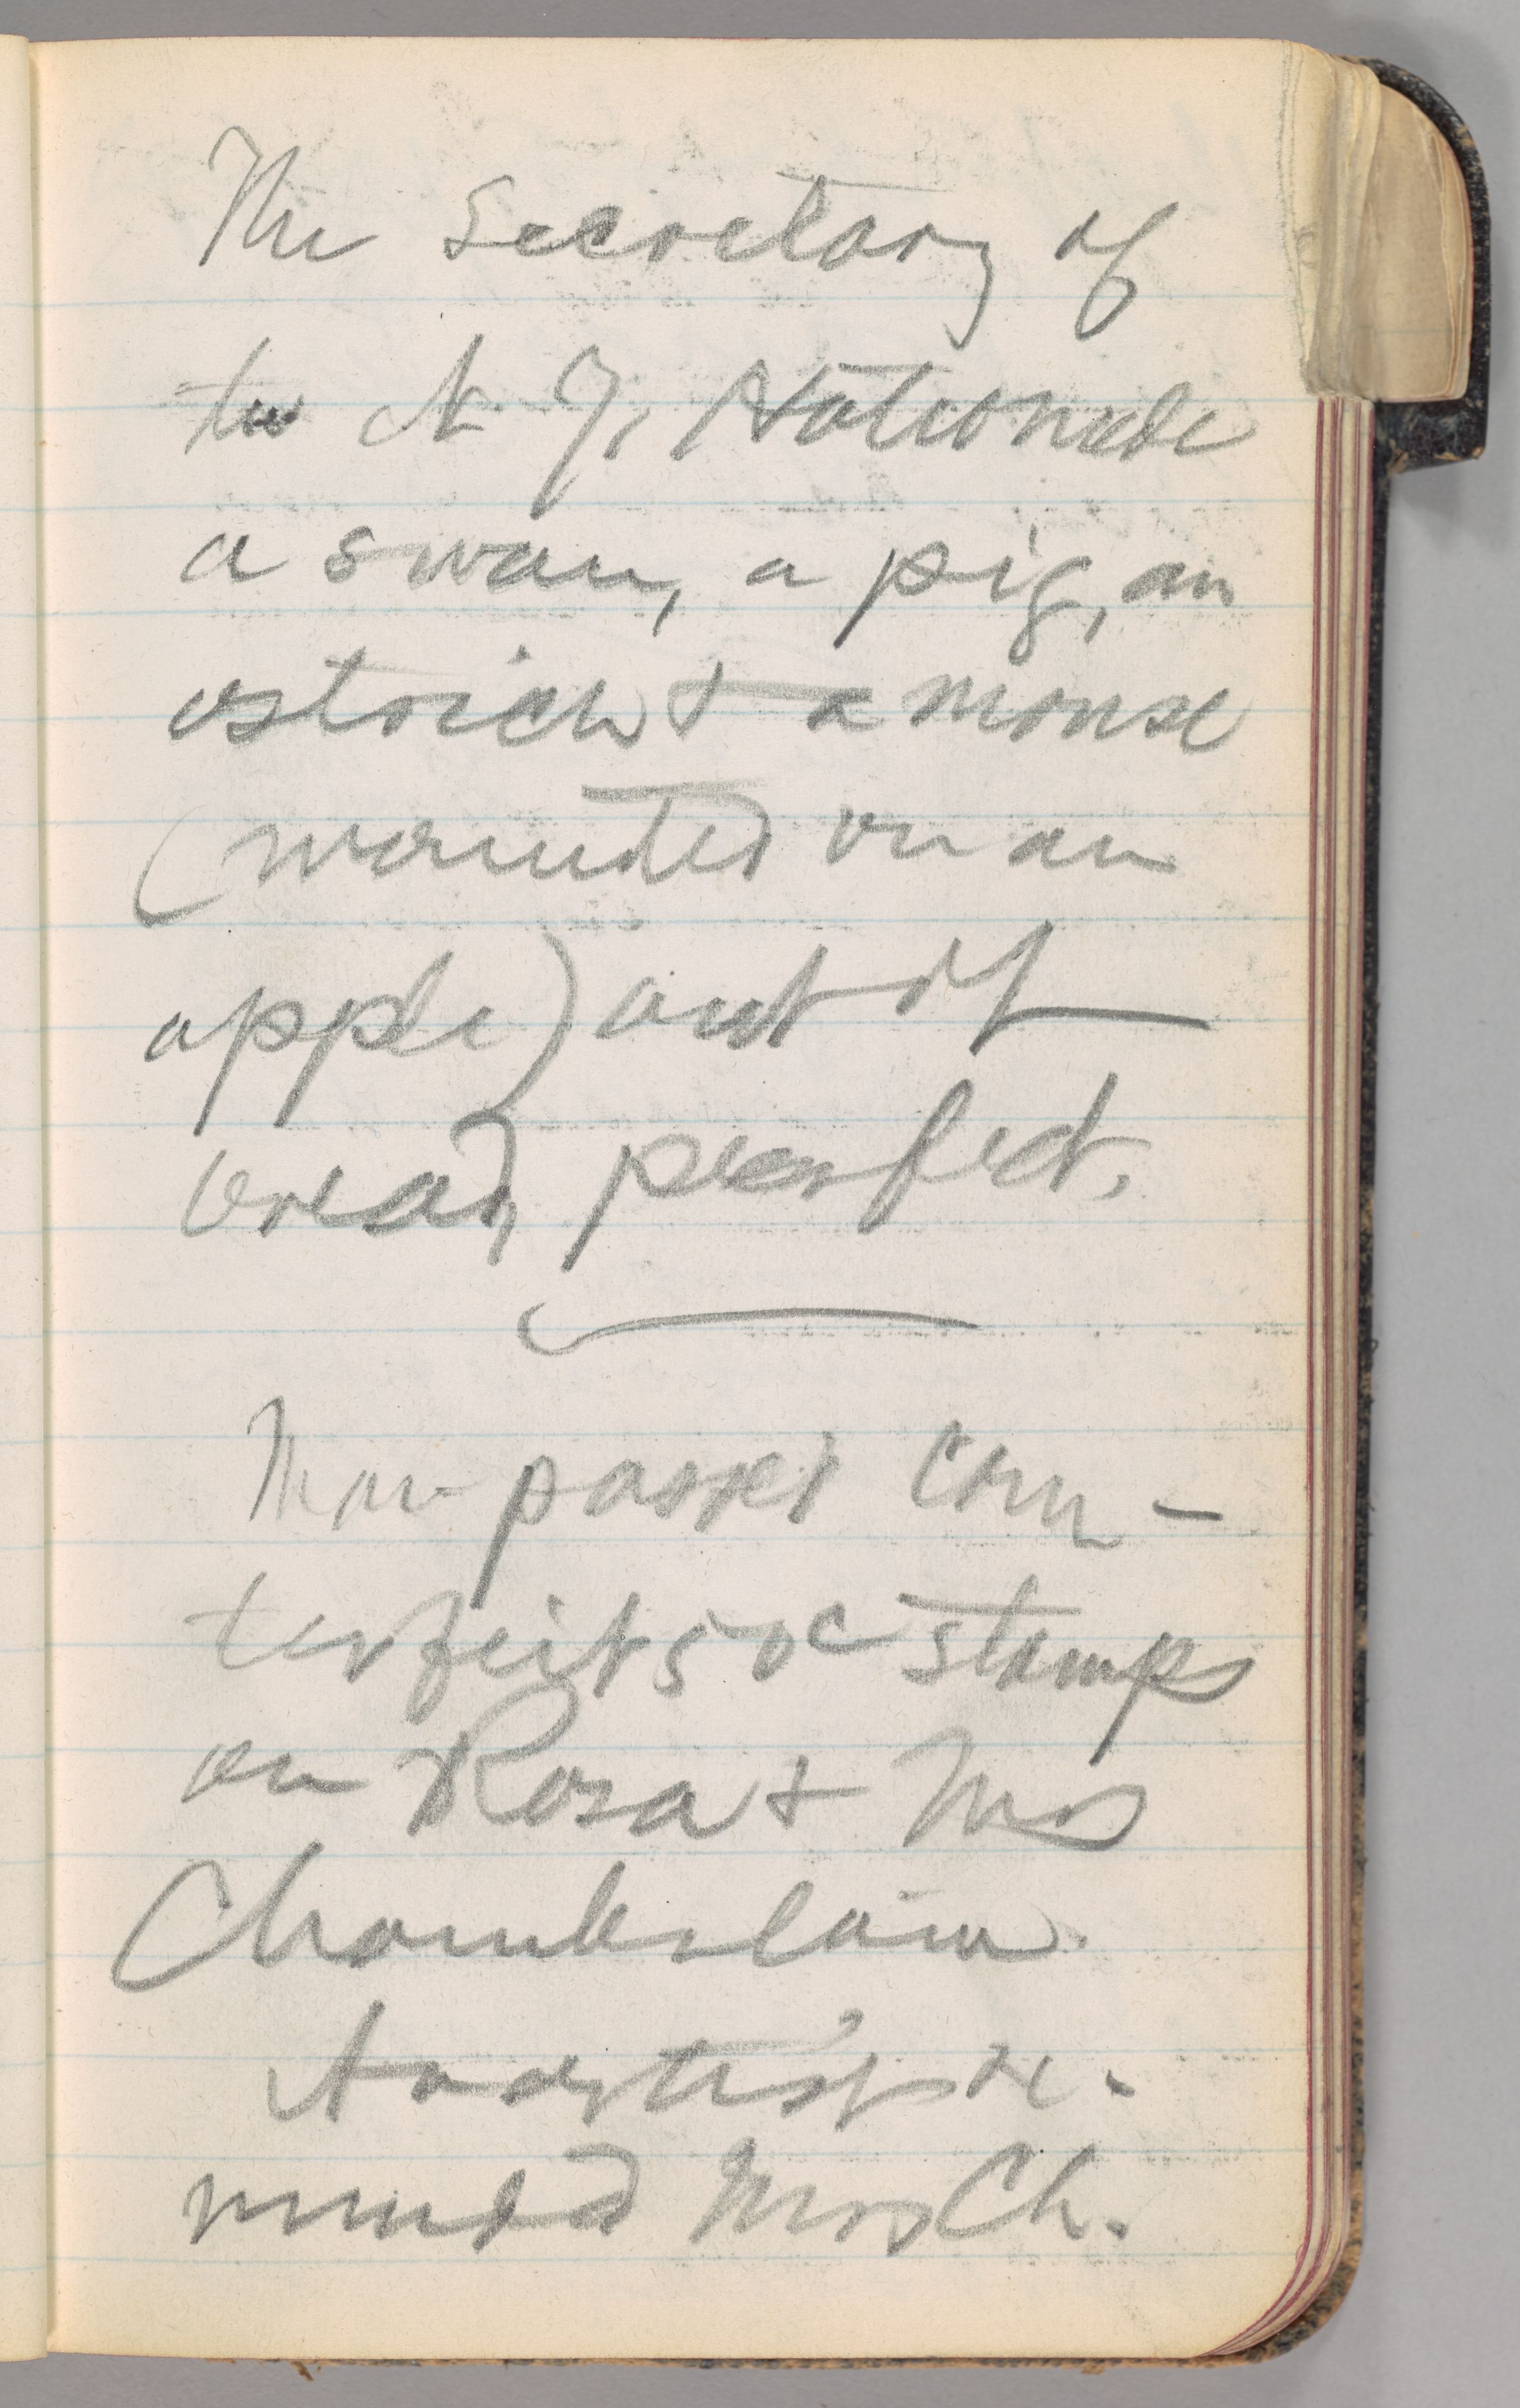 The Secretary of
the N. Y. National made
a swan, a pig, an
ostrich & a mouse
(mounted on an
apple) out of
bread, perfect.
Man passes coun-
terfeit 50c stamps
on Rosa & Mrs
Chamberlain.
minded Mrs Ch.